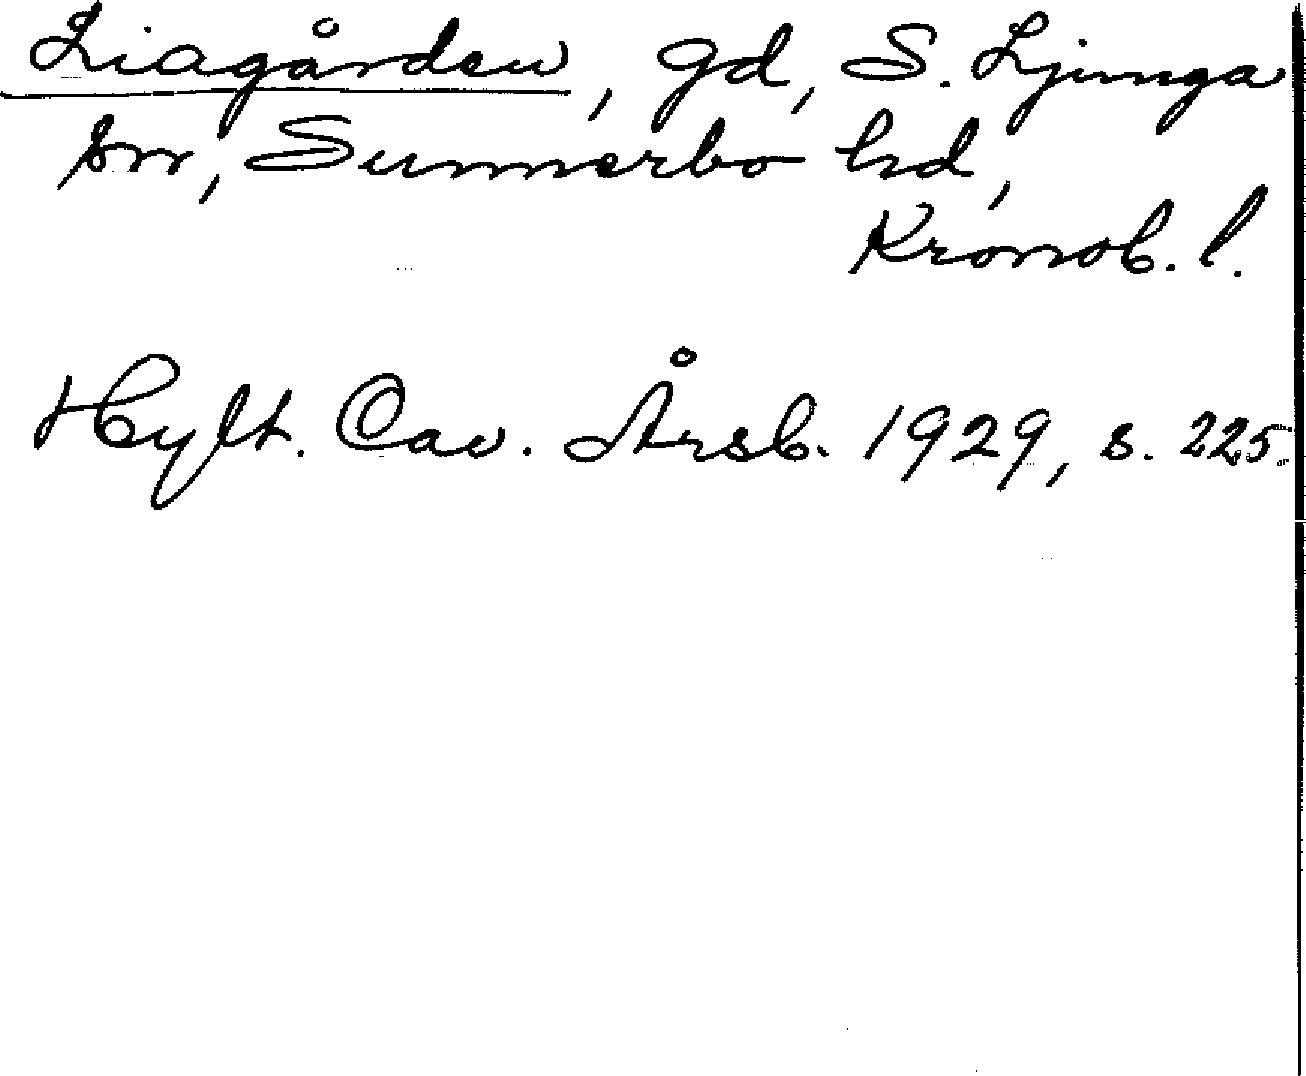 Liagården, gd, S. Ljunga
sn, Sunnerbo hd,
Kronob. l.
Hylt. Cav. Årsb. 1929, s. 225.